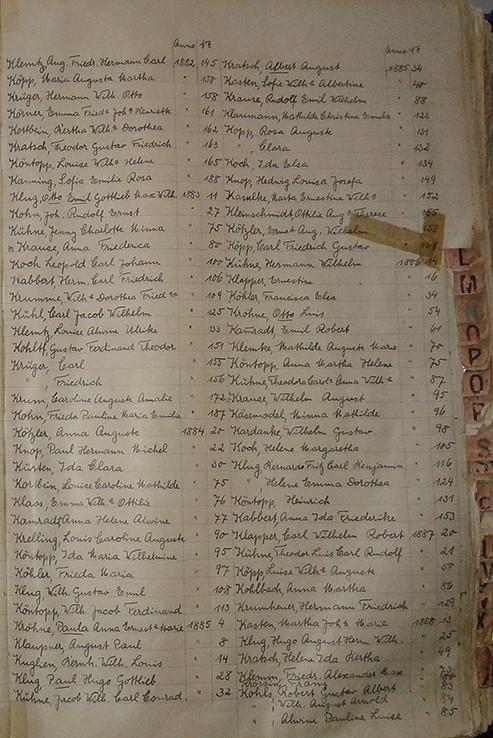 Anno №
Klemtz, Aug. Friedr. Hermann Carl 1882 145
Köpp, Maria Augusta Martha " 150
Krüger, Hermann Wilh. Otto " 158
Körner, Emma Friedr. Joh. Henriette " 161
Kostbein, Bertha Wilh. Dorothea " 162
Kratsch, Theodor Gustav Friedrich " 163
Köntopp, Louise Wilh. Helene " 165
Kanning, Sofia Emilie Rosa " 188
Klug, Otto Emil Gottlieb Max Wilh. 1883 11
Kohn, Joh. Rudolf Ernst " 27
Kühne, Jenny Charlotte Minna " 75
v. Krause, Anna Friederica " 80
Koch Leopold Carl Johann " 100
Kabbert Herm. Carl Friedrich " 106
Krumme, Wilh. Dorothea Fried. " 109
Kühl, Carl Jacob Wilhelm " 125
Klemtz, Louise Alwine Ulrike " 133
Kohltz, Gustav Ferdinand Theodor " 151
Krüger, Carl " 155
" , Friedrich " 156
Krum, Caroline Auguste Amalie " 172
Kohn, Frieda Pauline Maria Emilie " 187
Kötzler, Anna Auguste 1884 20
Knop, Paul Hermann Michel " 22
Kürten, Ida Clara " 30
Korbein, Louise Caroline Mathilde " 75
Klaas, Emma Wilh. Ottilie " 76
Kamradt, Anna Helene Alwine " 77
Krelling, Louis Caroline Auguste " 90
Köntopp, Ida Maria Wilhelmine " 95
Köhler, Frieda Maria " 97
Klug Wilh. Gustav Emil " 108
Köntopp, Wilh. Jacob Ferdinand " 113
Krohne, Paula Anna Ernest. Marie 1885 4
Klaupner, August Paul " 8
Kughen, Bernh. Wilh. Louis " 14
Klug Paul Hugo Gottlieb " 28
Kühne, Jacob Wilh. Carl Conrad " 32
Anno №
Kratsch, Albert August 1885 34
Kasten, Sofie Wilh. Albertine " 40
Krause, Rudolf Emil Wilhelm " 88
Klaumann, Mathilde Christine Emilie " 123
Köpp, Rosa Auguste " 131
" Clara " 132
Koch, Ida Elsa " 134
Knop, Hedwig Louisa Josefa " 149
Kaselke, Marta Ernestine Wilh. " 152
Kleinschmidt, Ottilie Aug. Therese " 155
Kötzler, Ernst Aug. Wilhelm
Köpp, Carl Friedrich Gustav
Kühne, Hermann Wilhelm 1886 14
Klapper, Ernestine " 16
Köhler, Francisca Elsa " 34
Krohne, Otto Luis " 54
Kamradt, Emil Robert " 61
Klemtke, Mathilde Auguste Marie " 70
Köntopp, Anna Martha Helene " 75
Kühne, Theodora Carol. Anna Wilh. " 87
Krause, Wilhelm August " 95
Käsemodel, Minna Mathilde " 96
Kardanke, Wilhelm Gustav " 98
Koch, Helene Margaretha " 105
Klug Bernardo Fritz Carl Benjamin " 116
" Helene Emma Dorothea " 124
Köntopp, Heinrich " 131
Kabbert, Anna Ida Friederike " 153
Klapper, Carl Wilhelm Robert 1887 20
Kühne, Theodor Luis Carl Rudolf " 21
Köpp, Luise Wilh. Auguste " 58
Kohlbach, Anna Martha " 86
Krumheuer, Hermann Friedrich " 129
Kasten, Martha Joh. Marie 1888 13
Klug, Hugo August Herm. Wilh. " 25
Kratsch, Helene Ida Bertha " 49
Klemm, Friedr. Alexander Max " 73
Franz
Kohls, Robert Gustav Albert " 83
" , Wilh. August Arnold " 84
" Alwine Pauline Luise " 85
L
M
O
P